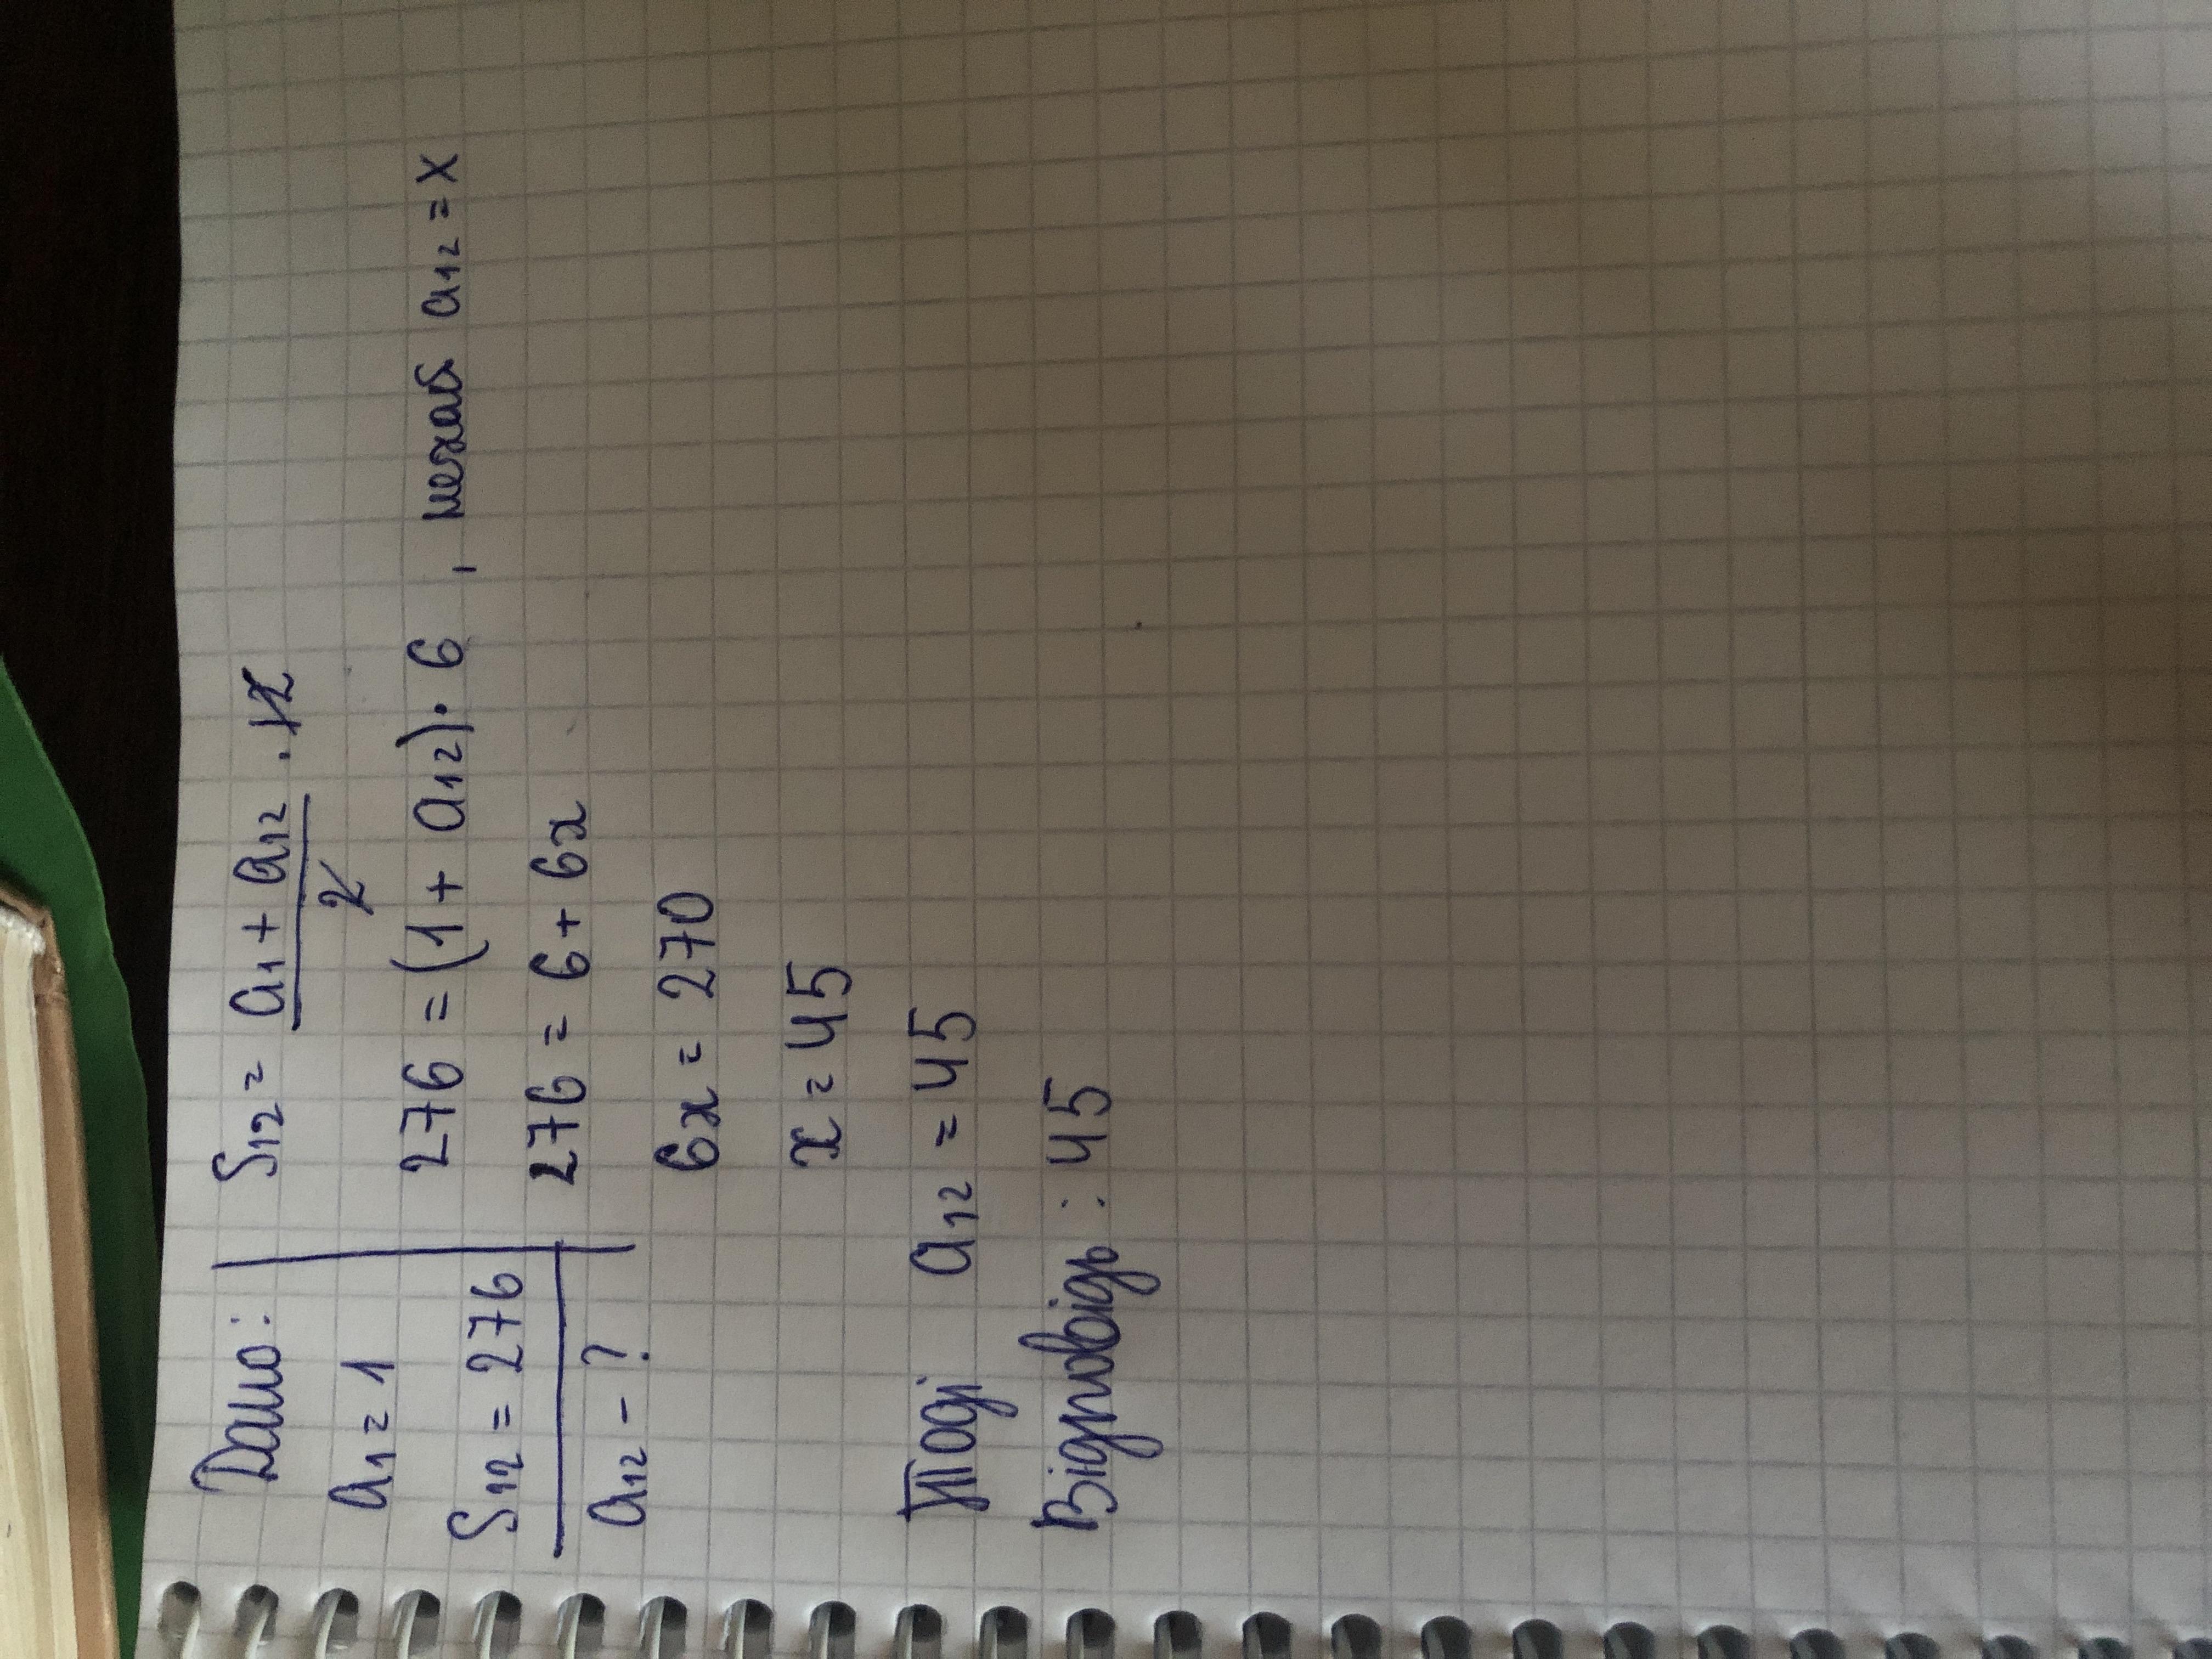 Дано:
a₁ = 1
S₁₂ = 276
a₁₂ - ?
S₁₂ = (a₁ + a₁₂)/2 · 12
276 = (1 + a₁₂) · 6 , нехай a₁₂ = x
276 = 6 + 6x
6x = 270
x = 45
Тоді a₁₂ = 45
Відповідь: 45